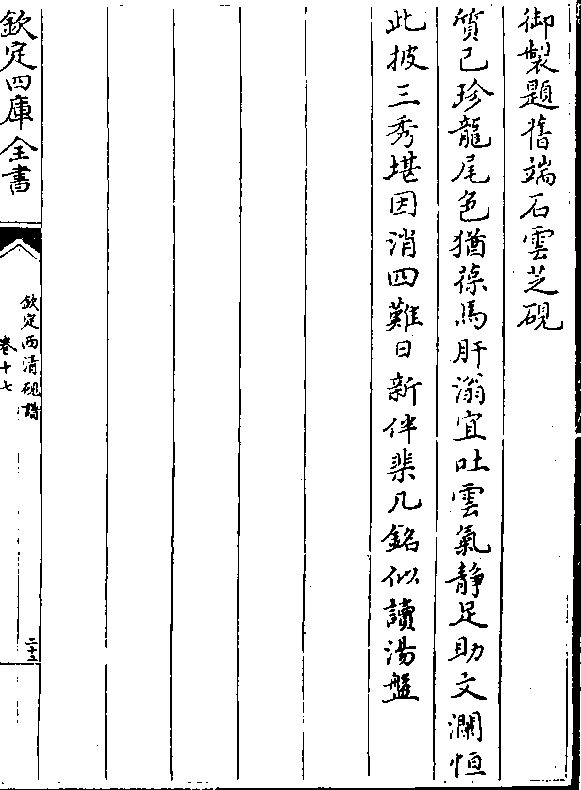 御製題舊端石雲芝硯
質已珍龍尾色猶葆馬肝滃宜吐雲氣靜足助文瀾恒
此披三秀堪因消四難日新伴棐几銘似讀湯盤
欽定四庫全書
欽定西清硯譜
卷十七
二十三